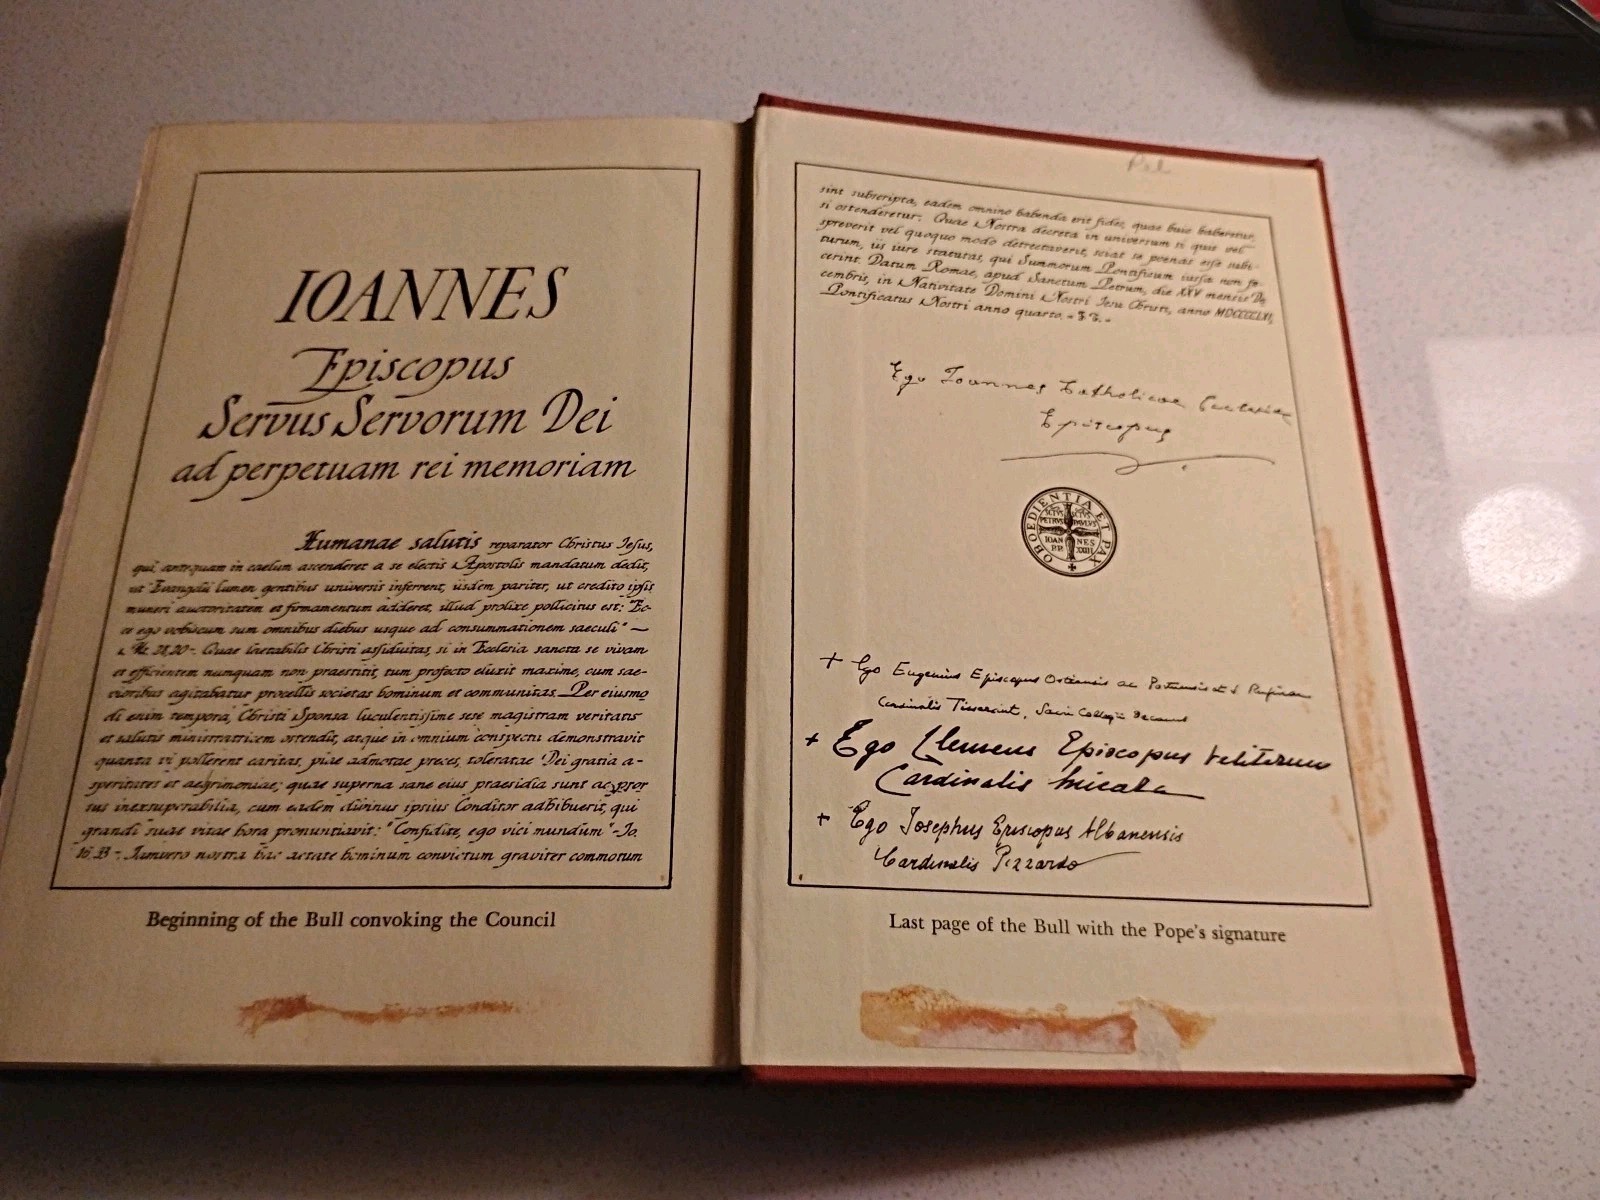 IOANNES
Episcopus
Servus Servorum Dei
ad perpetuam rei memoriam
Humanae salutis reparator Christus Iesus,
qui, antequam in caelum ascenderet a se electis Apostolis mandatum dedit,
ut Evangelii lumen gentibus universis inferrent, iisdem pariter, ut credito ipsis
muneri auctoritatem et firmamentum adderet, illud prolixe pollicitus est: "Ec-
ce ego vobiscum sum omnibus diebus usque ad consummationem saeculi" —
Mt. 28,20 -. Quae laetabilis Christi assiduitas, si in Ecclesia sancta se vivam
et efficientem nunquam non praestitit, tum profecto eluxit maxime, cum sae-
vioribus agitabatur procellis societas hominum et communitas. Per eiusmo
di enim tempora, Christi Sponsa luculentissime sese magistram veritatis
et salutis ministratricem ostendit, atque in omnium conspectu demonstravit
quanta vi pollerent caritas, piae admotae preces, toleratae Dei gratia a-
speritates et aegrimoniae; quae superna sane eius praesidia sunt ac pror
sus inexsuperabilia, cum eadem divinus ipsius Conditor adhibuerit, qui
grandi suae vitae hora pronuntiavit: "Confidite, ego vici mundum" - Io.
16,33 -. Iamvero nostra hac aetate hominum convictum graviter commotum
Beginning of the Bull convoking the Council
sint subscripta, eadem omnino habenda erit fides, quae huic haberetur,
si ostenderetur. Quae Nostra decreta in universum si quis vel
spreverit vel quoquo modo detrectaverit, sciat se poenas esse subi-
turum, iis iure statutas, qui Summorum Pontificum iussa non fe-
cerint. Datum Romae, apud Sanctum Petrum, die XXV mensis De
cembris, in Nativitate Domini Nostri Iesu Christi, anno MDCCCCLXI,
Pontificatus Nostri anno quarto.
Ego Ioannes Catholicae Ecclesiae
Episcopus
OBOEDIENTIA ET PAX
SCTVS PETRVS SCTVS PAVLVS
IOANNES PP. XXIII
+ Ego Eugenius Episcopus Ostiensis ac
Cardinalis Tisserant, Sacri Collegii Decanus
+ Ego Clemens Episcopus Veliternus
Cardinalis Micara
+ Ego Josephus Episcopus Albanensis
Cardinalis Pizzardo
Last page of the Bull with the Pope's signature